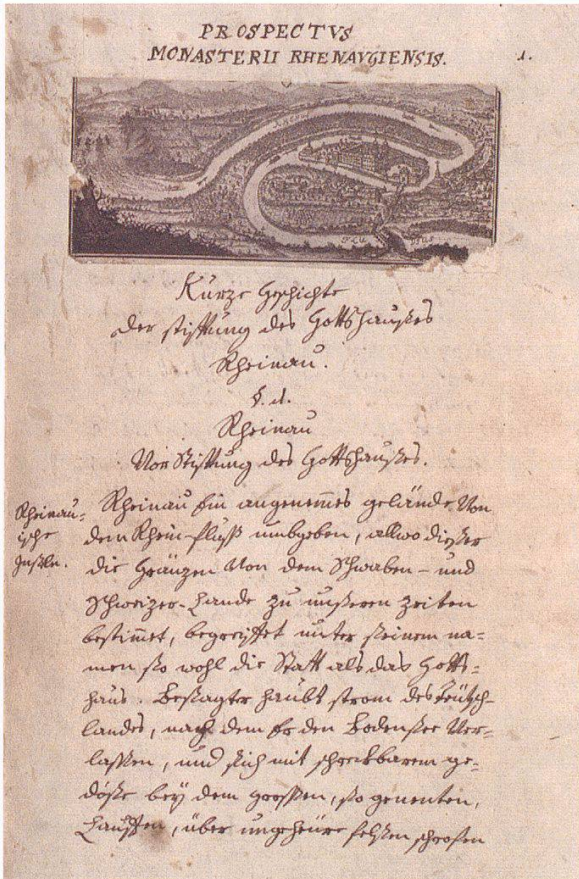 PROSPECTVS
MONASTERII RHENAVGIENSIS.
1.
Kurze Geschichte
der stifftung des Gottshauses
Rheinau.
§. 1.
Rheinau
Von Stifftung des Gottshauses.
Rheinau-
ische
Inseln.
Rheinau ein angenemes gelände, Von
dem Rhein-fluss umbgeben, allwo dieser
die Gränzen Von dem Schwaben- und
Schweizer-Lande zu unseren zeiten
bestimet, begreiffet unter seinem na-
men so wohl die Statt als das Gotts-
haus. Besagter haubt strom des teütsch-
landes, nach dem Er den Bodensee Ver-
lassen, und sich mit schreckbarem ge-
döse bey dem grossen, so genenten,
Lauffen, über ungeheüre felsen schrofen